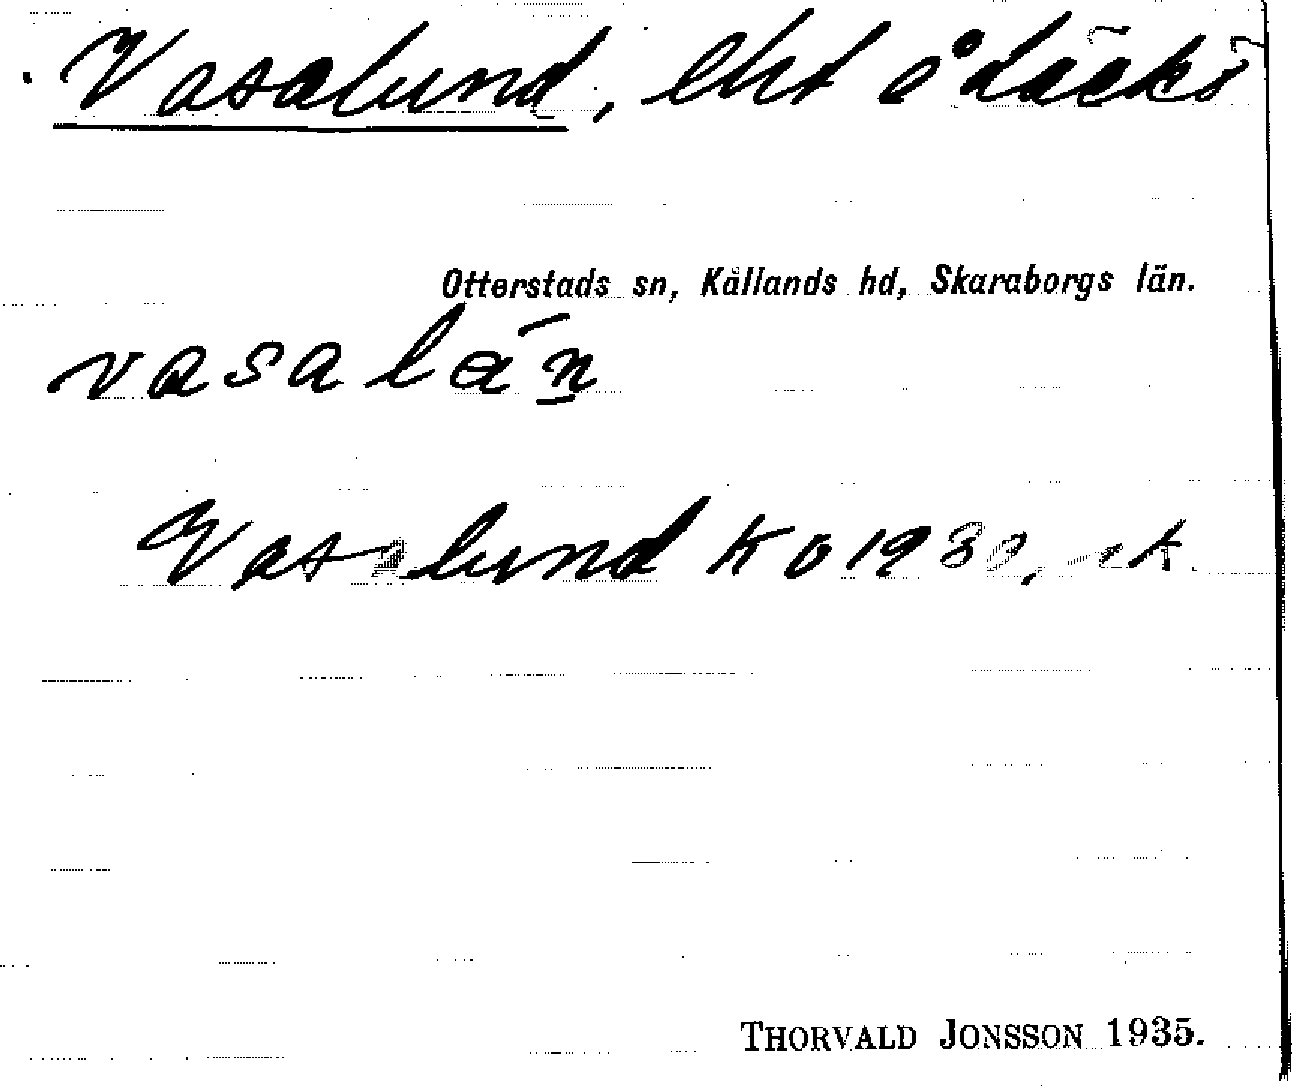 Vasalund, lht å Läckö
Otterstads sn, Kållands hd, Skaraborgs län.
vasalán
Vasalund KV 1930,
THORVALD JONSSON 1935.